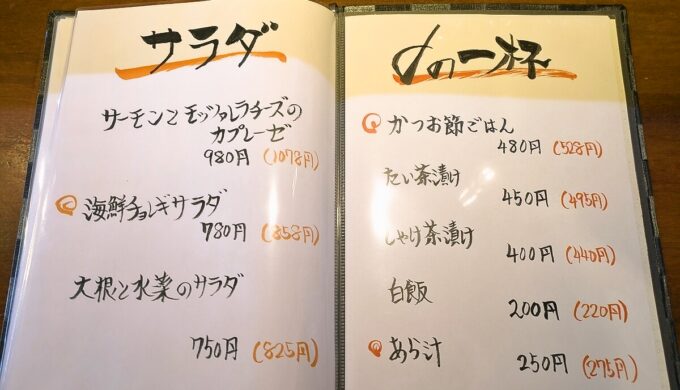 サラダ
サーモンとモッツァレラチーズの
カプレーゼ
980円 (1078円)
海鮮チョレギサラダ
780円 (858円)
大根と水菜のサラダ
750円 (825円)
〆の一杯
かつお節ごはん
480円 (528円)
たい茶漬け
450円 (495円)
しゃけ茶漬け
400円 (440円)
白飯
200円 (220円)
あら汁
250円 (275円)